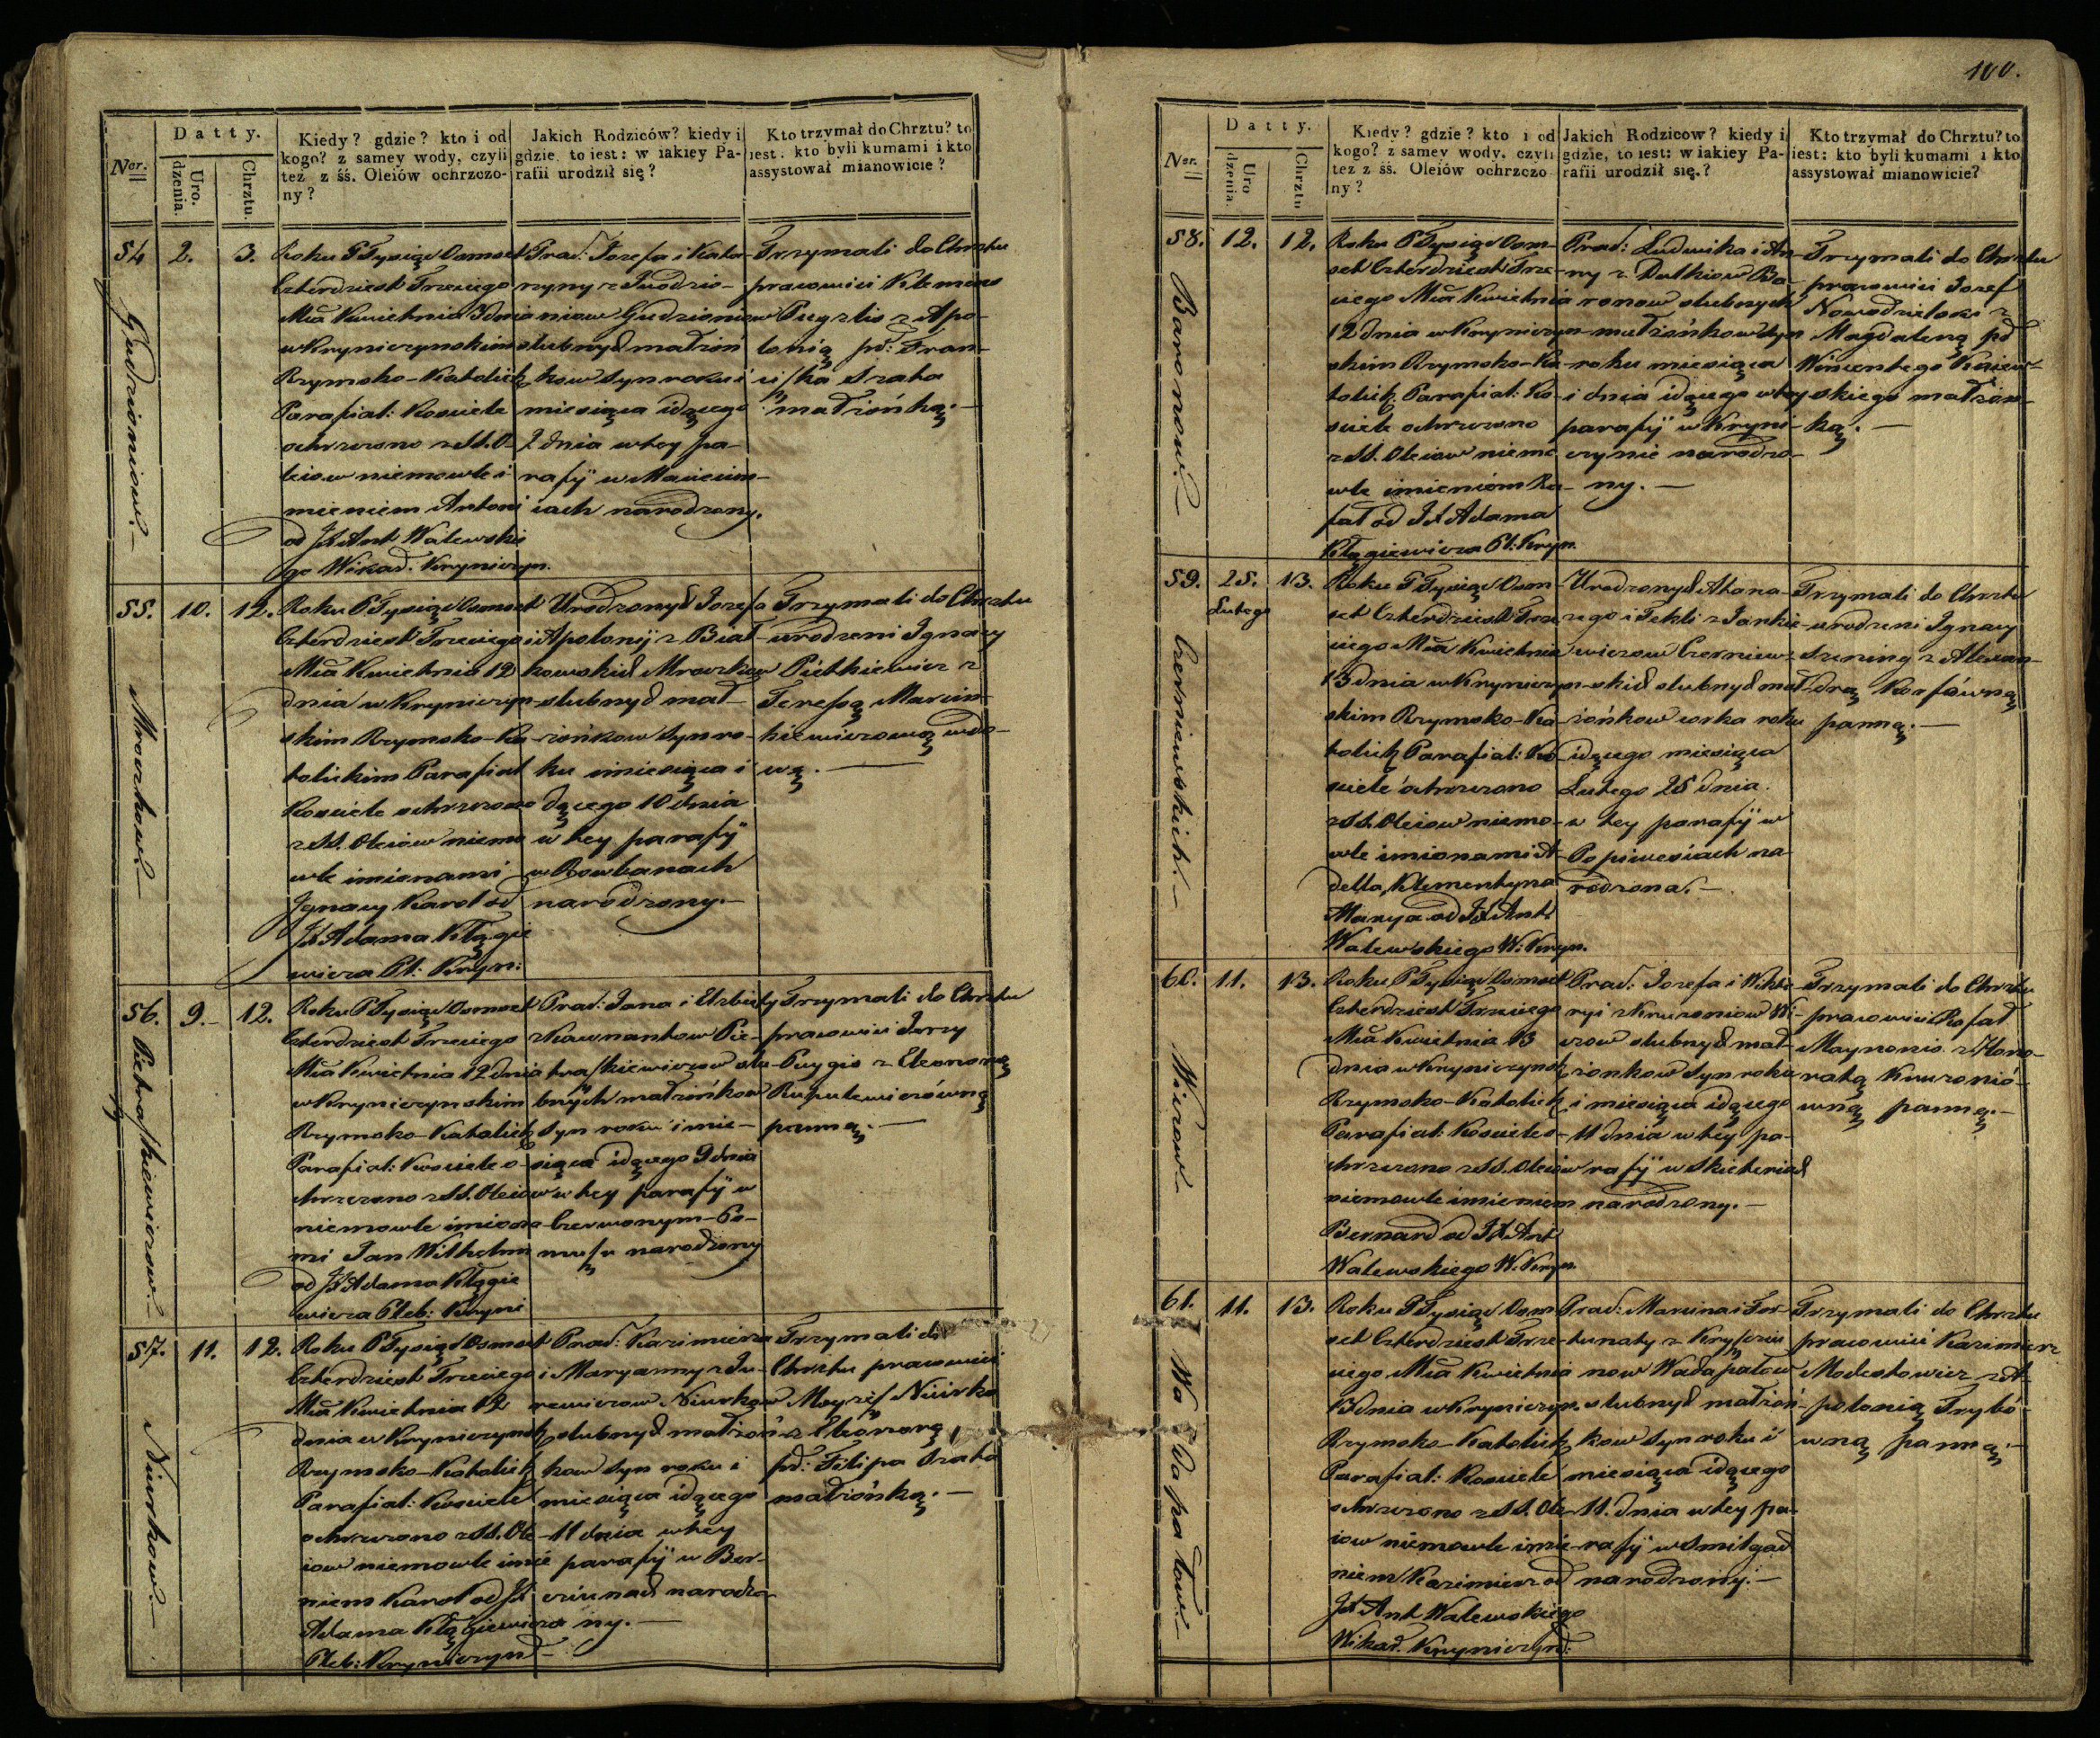 100.
Datty.
Ner.
Uro.
dzenia.
Chrztu.
Kiedy? gdzie? kto i od
kogo? z samey wody, czyli
też z śś. Oleiów ochrzczo-
ny?
Jakich Rodziców? kiedy i
gdzie, to iest: w iakiey Pa-
rafii urodził się?
Kto trzymał do Chrztu? to
iest, kto byli kumami i kto
assystował mianowicie?
54
2.
3.
Gudzioniow.
Roku P Tysiąc Osmset
Czterdziest Trzeciego
Mca Kwietnia 3 dnia
w Kryniczynskim
Rzymsko-Katolick
Parafial: Kosciele
ochrzczono z SS. O-
leiow niemowle i
mieniem Antoni
od JX Ant Walewskie
go Wikad. Kryniczyn.
Prac: Jozefa i Kata-
rzyny z
niow Gudzioniow
slubnych małżon
kow syn roku i
miesiąca idącego
2 dnia w tey pa-
rafij w
iach narodzony.
Trzymali do Chrztu
pracowici Klemens
z Apo-
lonią pd: Fran-
ciszka Szata
małżonką.
55.
10.
12.
Mroczkow.
Roku P Tysiąc Osmset
Czterdziest Trzeciego
Mca Kwietnia 12
dnia w Kryniczyn-
skim Rzymsko-Ka
tolickim Parafial
Kosciele ochrzczono
z SS. Oleiow niemo
wle imionami
Ignacy Karol od
JX Adama Kłągie
wicza Pl: Kryn:
Urodzonych Jozefa
i Apolonij z Biał-
kowskich Mroczkow
slubnych mał-
żonkow syn ro-
ku i miesiąca i
dącego 10 dnia
w tey parafij
w Rowbanach
narodzony.
Trzymali do Chrztu
urodzeni Ignacy
Pietkiewicz z
Teressą Marcin-
kiewiczową wdo-
wą.
56.
9.
12.
Pietraszkiewiczow.
Roku P Tysiąc Osmset
Czterdziest Trzeciego
Mca Kwietnia 12 dnia
w Kryniczynskim
Rzymsko-Katolick
Parafial: Kosciele o-
chrzczono z SS. Oleiow
niemowle imiona-
mi Jan Wilhelm
od JX Adama Kłągie
wicza Pleb: Kryni
Prac: Jana i Elzbiety
z Kawnankow Pie-
traszkiewiczow slu-
bnych małżonkow
syn roku i mie-
siąca idącego 9 dnia
w tey parafij w
Czerwonym-Po-
narodzony
Trzymali do Chrztu
pracowici Jerzy
z Eleonorą
panną.
57.
11.
12.
Niurkow.
Roku P Tysiąc Osmset
Czterdziest Trzeciego
Mca Kwietnia 12
dnia w Kryniczynsk
Rzymsko-Katolick
Parafial: Kosciele
ochrzczono z SS. Ole-
iow niemowle imie
niem Karol od JX
Adama Kłągiewicza
Pleb: Kryniczyn
Prac: Kazimierza
i Maryanny z Ju-
rewiczow Niurkow
slubnych małżon-
kow syn roku i
miesiąca idącego
11 dnia w tey
parafij w Ber-
narodzo
ny.
Trzymali do
Chrztu pracowici
Moyzesz Niurko
z Eleonorą
pd: Filipa Szata
małżonką.
Datty.
Ner.
Uro
dzenia.
Chrztu
Kiedy? gdzie? kto i od
kogo? z samey wody, czyli
też z śś. Oleiów ochrzczo
ny?
Jakich Rodzicow? kiedy i
gdzie, to iest: w iakiey Pa-
rafii urodził się.?
Kto trzymał do Chrztu? to
iest: kto byli kumami i kto
assystował mianowicie?
58.
12.
12.
Baronow.
Roku P Tysiąc Osm-
set Czterdziest Trze-
ciego Mca Kwietnia
12 dnia w Kryniczyn-
skim Rzymsko-Ka-
tolick Parafial: Ko-
sciele ochrzczono
z SS. Oleiow niemo
wle imieniem Ra-
fał od JX Adama
Kłągiewicza Pl: Kryn.
Prac: Ludwika i An-
ny z Butkiow Ba-
ronow slubnych
małżonkow syn
roku miesiąca
i dnia idącego w tey
parafij w Kryni-
czynie narodzo-
ny.
Trzymali do Chrztu
pracowici Jozef
Nowodzielski z
Magdaleną pd
Wincentego
skiego małżon-
ką.
59.
25.
Lutego
13.
Czerniewskich.
Roku P Tysiąc Osm-
set Czterdziest Trze
ciego Mca Kwietnia
13 dnia w Kryniczyn-
skim Rzymsko-Ka
tolick Parafial: Ko-
sciele ochrzczono
z SS. Oleiow niemo-
wle imionami A-
della, Klementyna
Marya od JX Ant
Walewskiego W: Kryn.
Urodzonych Atana-
zego i Tekli z Jankie-
wiczow Czerniew-
skich slubnych mał-
żonkow corka roku
idącego miesiąca
Lutego 25 dnia
w tey parafij w
Popiwesiach na-
rodzona.
Trzymali do Chrztu
urodzeni Ignacy
Szening z Alexan-
drą Korfówną
panną.
60.
11.
13.
Wizow.
Roku P Tysiąc Osmset
Czterdziest Trzeciego
Mca Kwietnia 13
dnia w Kryniczynsk
Rzymsko-Katolick
Parafial: Kosciele o-
chrzczono z SS. Oleiow
niemowle imieniem
Bernard od JX Ant
Walewskiego W. Kryn.
Prac: Jozefa i Wikto-
ryi z Kruzoniow Wi-
zow slubnych mał-
żonkow syn roku
i miesiąca idącego
11 dnia w tey pa-
rafij w
narodzony.
Trzymali do Chrztu
pracowici Rafał
Maynonis z Hono-
ratą Kruzonió-
wną panną.
61.
11.
13.
Wadapałow.
Roku P Tysiąc Osm
set Czterdziest Trze-
ciego Mca Kwietnia
13 dnia w Kryniczyn.
Rzymsko-Katolick
Parafial: Kosciele
ochrzczono z SS. Ole-
iow niemowle imie-
niem Kazimierz od
JX Ant Walewskiego
Wikad. Kryniczyn:
Prac: Marcina i For-
tunaty z
now Wadapałow
slubnych małżon-
kow syn roku i
miesiąca idącego
11. dnia w tey pa-
rafij w Smilgach
narodzony.
Trzymali do Chrztu
pracowici Kazimierz
Modestowicz z A-
polonią Trybó-
wną panną.